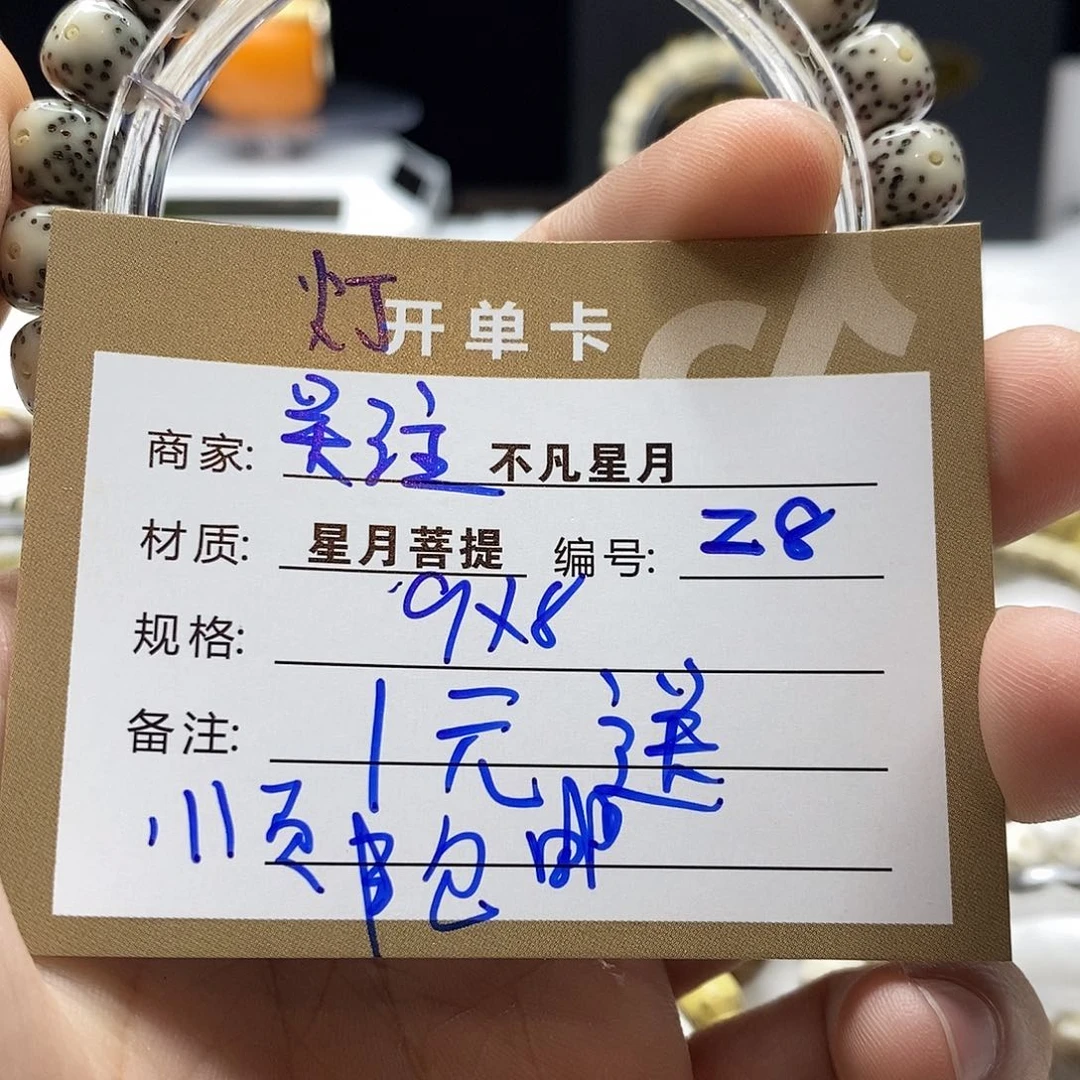 灯 开单卡
商家: 关注 不凡星月
材质: 星月菩提 编号: Z8
规格: 9X8
备注: 1元送
顺丰包邮